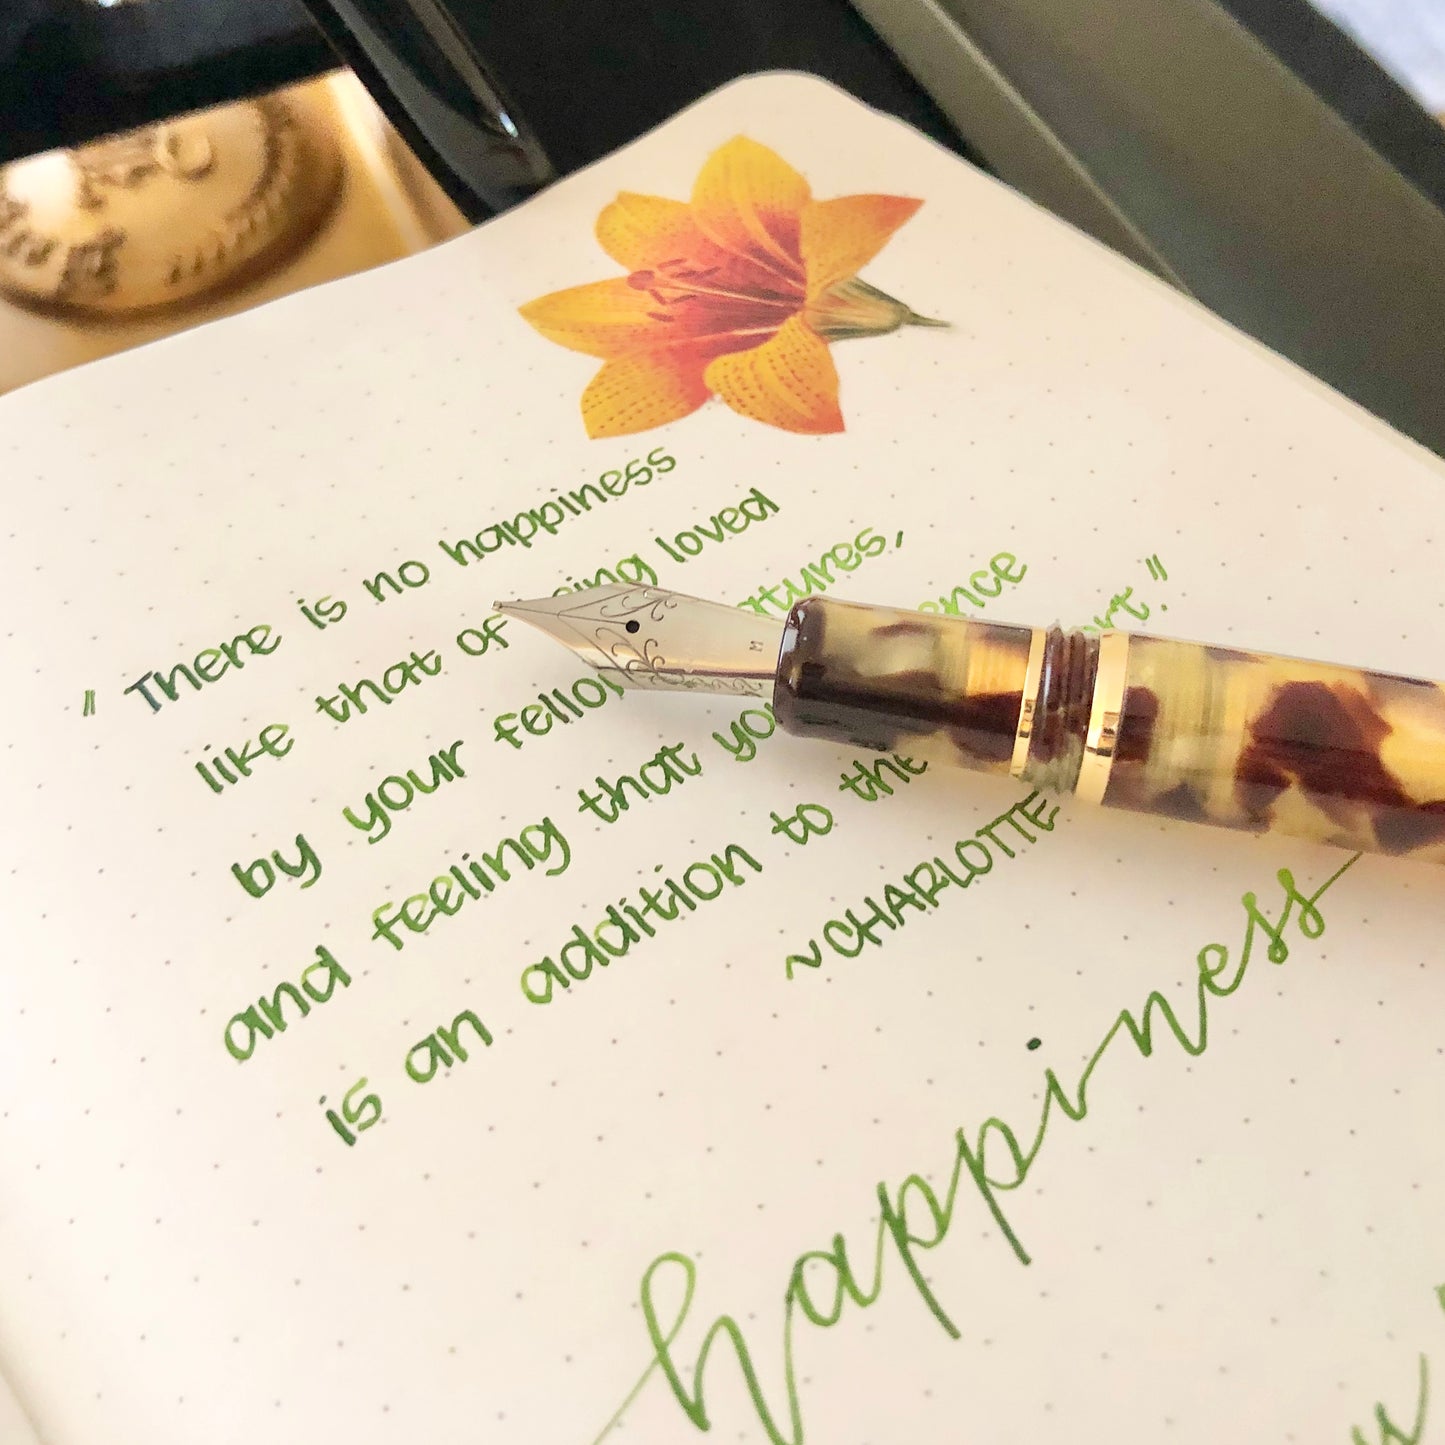 " There is no happiness
like that of being loved
by your fellow creatures,
and feeling that your presence
is an addition to their comfort."
~CHARLOTTE
happiness
M